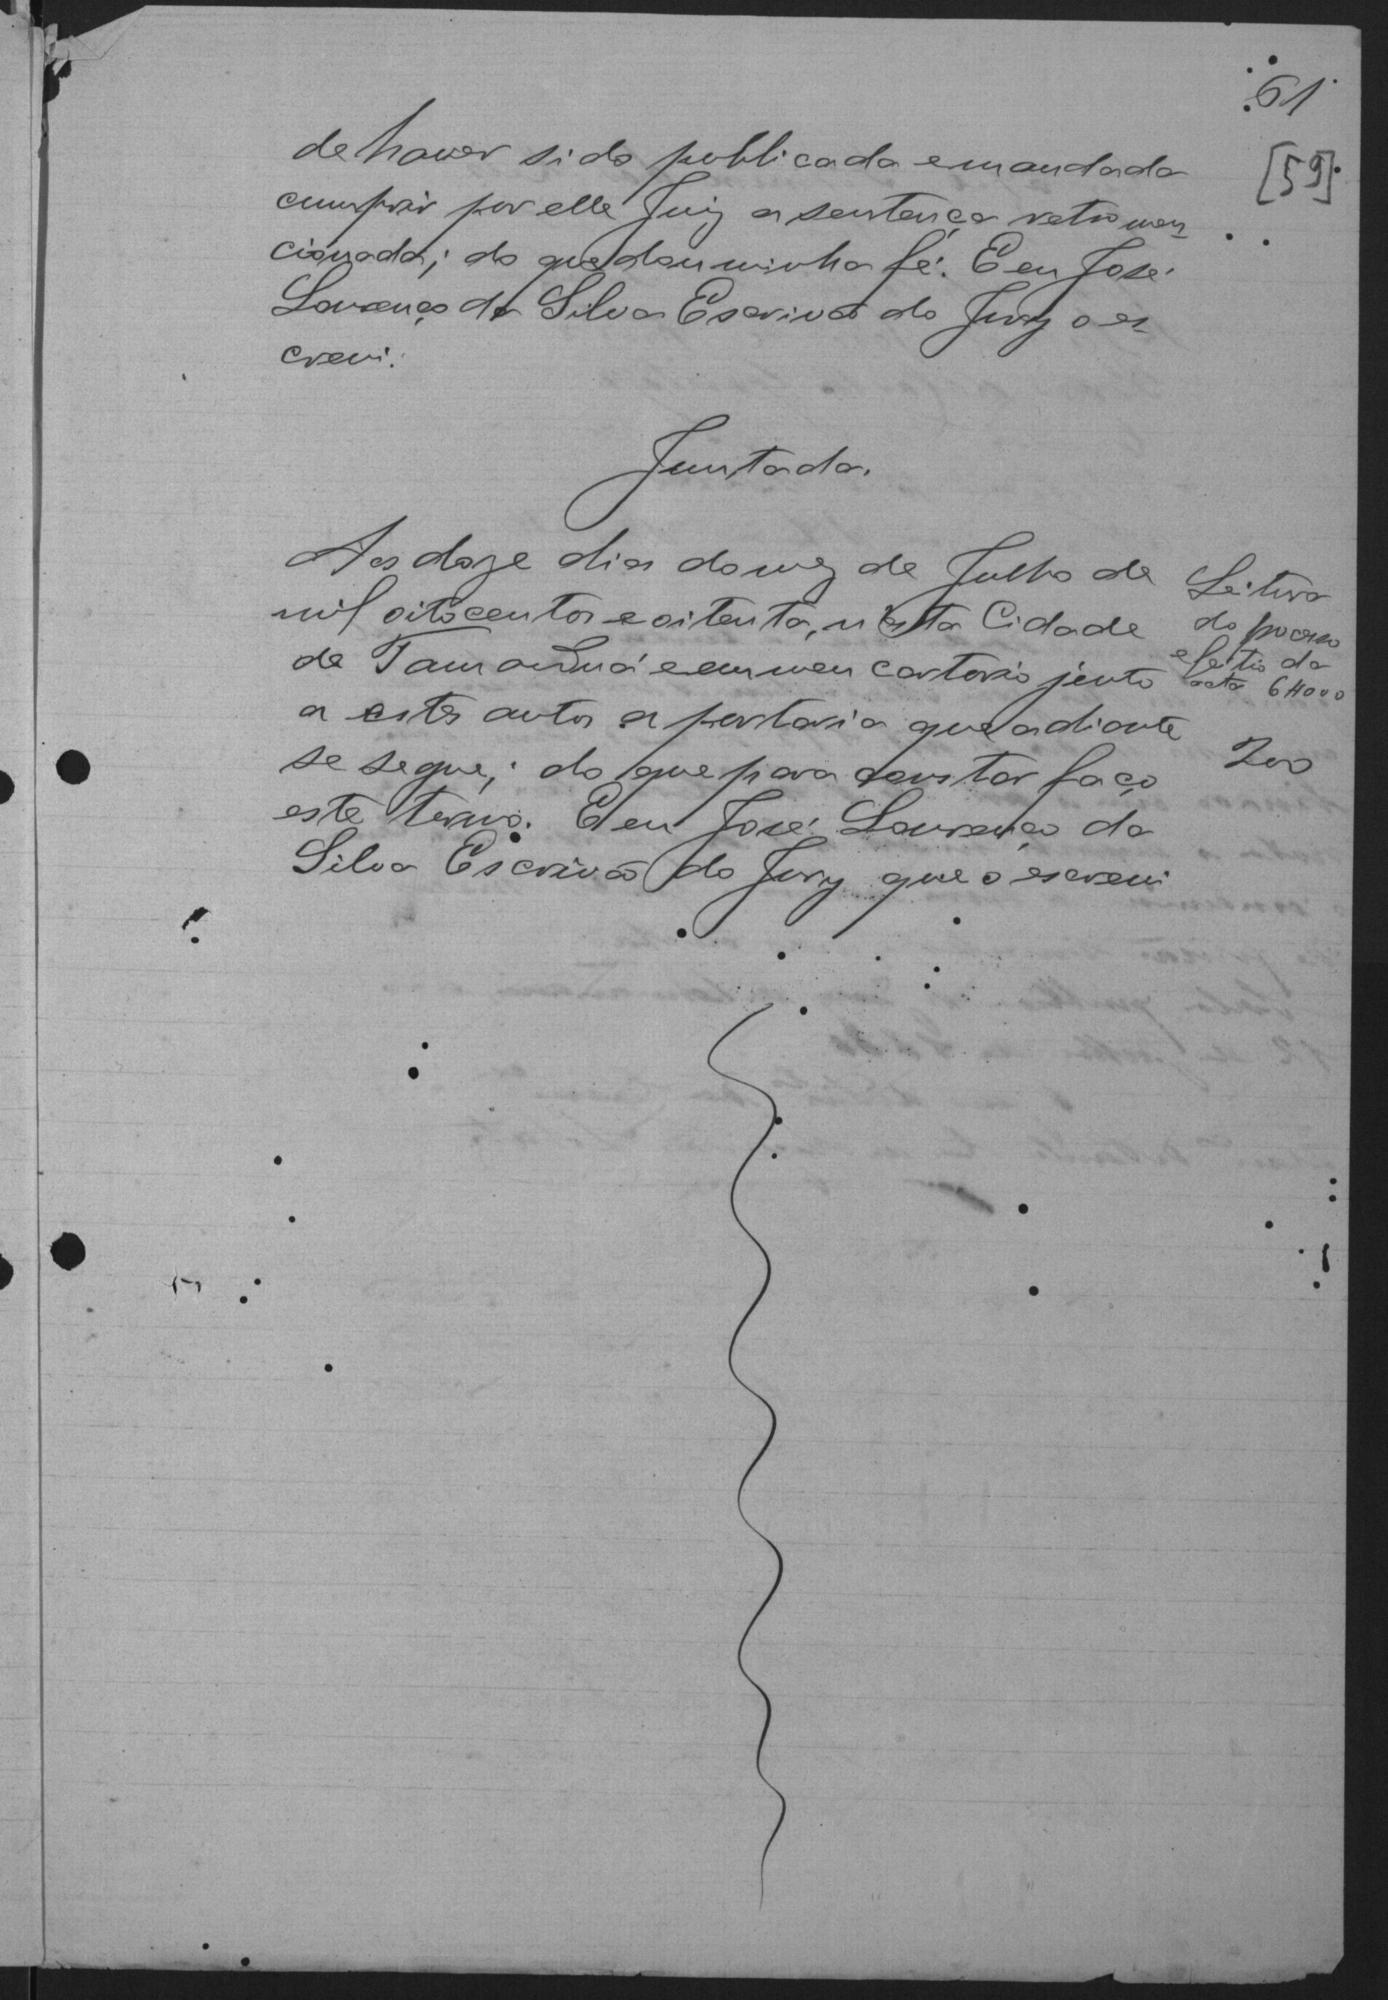 61
[59]
de haver sido publicada e mandada
cumprir por elle Juiz a sentença retro men
cionada; do que dou minha fé. E eu José
Lourenço da Silva Escrivão do Jury o es
crevi.
Juntada.
Aos doze dias do mez de Julho de
mil oitocentos e oitenta, n'esta Cidade
de Tamanduá e em meu cartorio junto
a estes autos a portaria que adiante
se segue; do que para constar faço
este termo. E eu José Lourenço da
Silva Escrivão do Jury que o escrevi
Leitura
do processo
e feitio da
acta 6#000
200